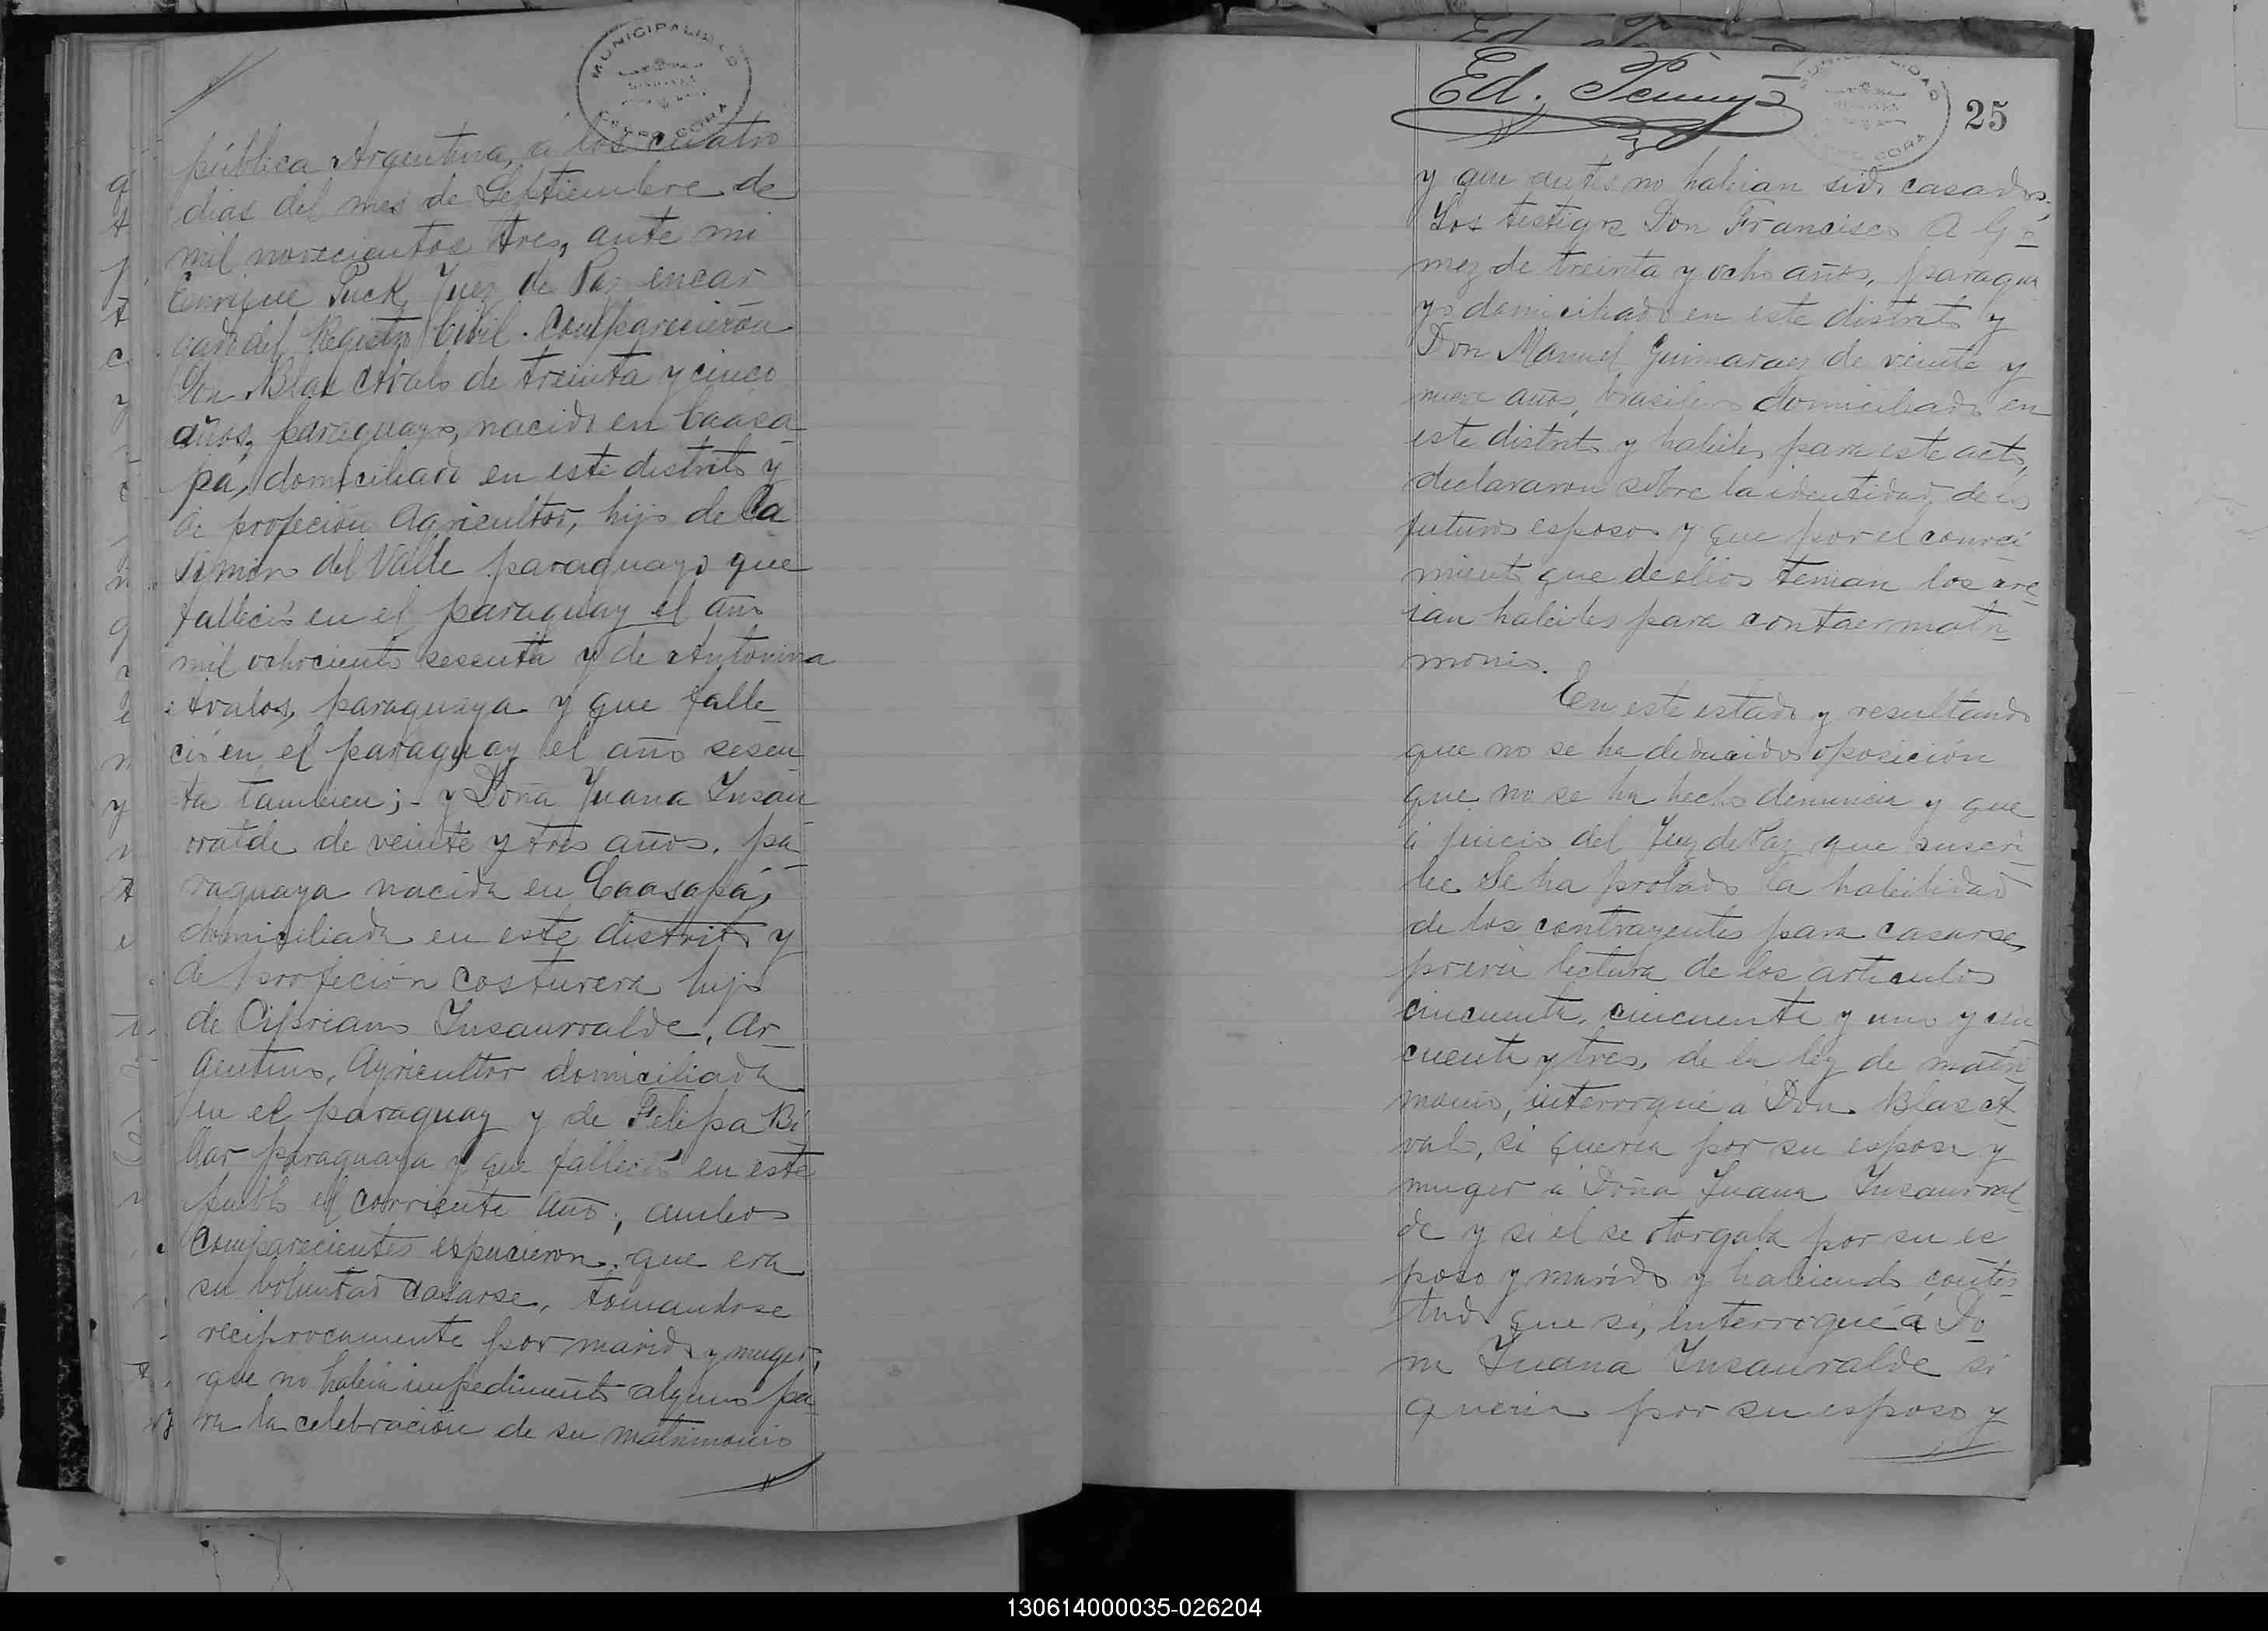 MUNICIPALIDAD
CERRO CORA
pública Argentina, a los cuatro
dias del mes de Septiembre de
mil novecientos tres, ante mi
Enrique Puck Juez de Paz encar
gado del Registro Civil. Comparecieron
Don Blas Avalo de treinta y cinco
años, paraguayo, nacido en Caasa-
pá, domiciliado en este distrito y
de profeción Agricultor, hijo de Ca
simiro del Valle paraguayo que
fallecio en el paraguay el año
mil ochociento sesenta y de Antonina
Avalos, paraguaya y que falle-
ció en el paraguay el año sesen
ta tambien; - y Doña Juana Insau
rralde de veinte y tres años, pa-
raguaya nacida en Caasapá,
domiciliada en este distrito y
de profeción costurera hijo
de Cipriano Insaurralde, Ar-
gentino, Agricultor domiciliada
en el paraguay y de Felipa
paraguaya y que falleció en este
pueblo el corriente año; ambos
comparecientes espucieron, que era
su voluntad casarse, tomandose
reciprocamente por marido y muger,
que no habia impedimento alguno pa-
ra la celebración de su matrimonio
Ed. Pennys
MUNICIPALIDAD
CERRO CORA
25
y que antes no habian sido casados;
Los testigos Don Francisco A Gó
mez de treinta y ocho años, paragua
yo domiciliado en este distrito y
Don Manuel Guimaraez de veinte y
nueve años, brasilero domiciliado en
este distrito y habiles para este acto,
declararon sobre la identidad de los
futuros esposos y que por el conoci
miento que de ellos tenian los cre-
ian habiles para contaer matri
monio.
En este estado y resultando
que no se ha deducido oposición
que no se ha hecho denuncia y que
á juicio del Juez de Paz que suscri-
be Se ha probado la habilidad
de los contrayentes para casarse,
previa lectura de los articulos
cincuenta, cincuenta y uno y cin
cuenta y tres, de la ley de matri
monio, interrogué a Don Blas A
valo, si queria por su esposa y
muger a Doña Juana Insaurral
de y si el se otorgaba por su es
poso y marido y habiendo contes-
tado que si, interrogué a Do
na Juana Insaurralde si
queria por su esposo y
130614000035-026204